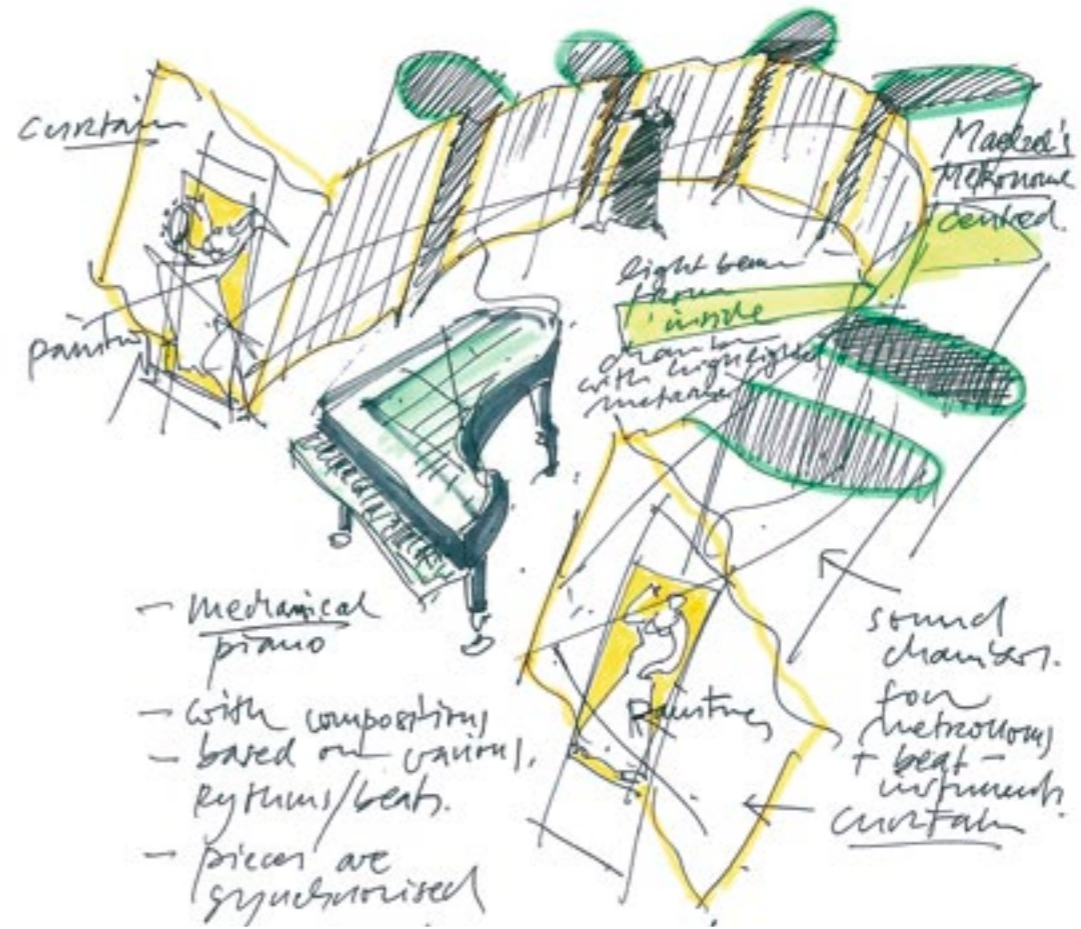 curtain
painting
Maelzel's
Metronome
centred.
light beam
from
inside
chamber
with highlighted
metronome
- mechanical
piano
- with compositions
- based on various.
Rythms/beats.
- pieces are
synchronised
Painting
sound
chambers.
for
metronoms
+ beat -
instruments.
curtain